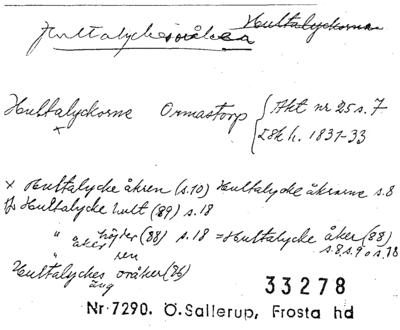 Hultalyckorna
Hultalyckesvålen
Hultalyckorna Ormastorp { Akt nr 25 s. 7
LSk h. 1831-33
x Hultalycke åkren (s.10) Hultalycke åkrarne s.8
Hultalycke hult (89) s.18
" höjder (88) s.18 = Hultalycke åker (88)
åker s.8, s.9 o s.18
" ren
Hultalyckes oråker (76)
äng
33278
Nr 7290. Ö. Sallerup, Frosta hd